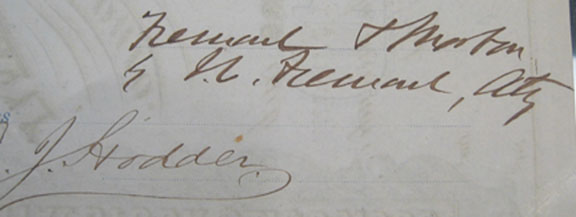 Fremont & Morton
by N. Fremont, Atty
J. Hodder.